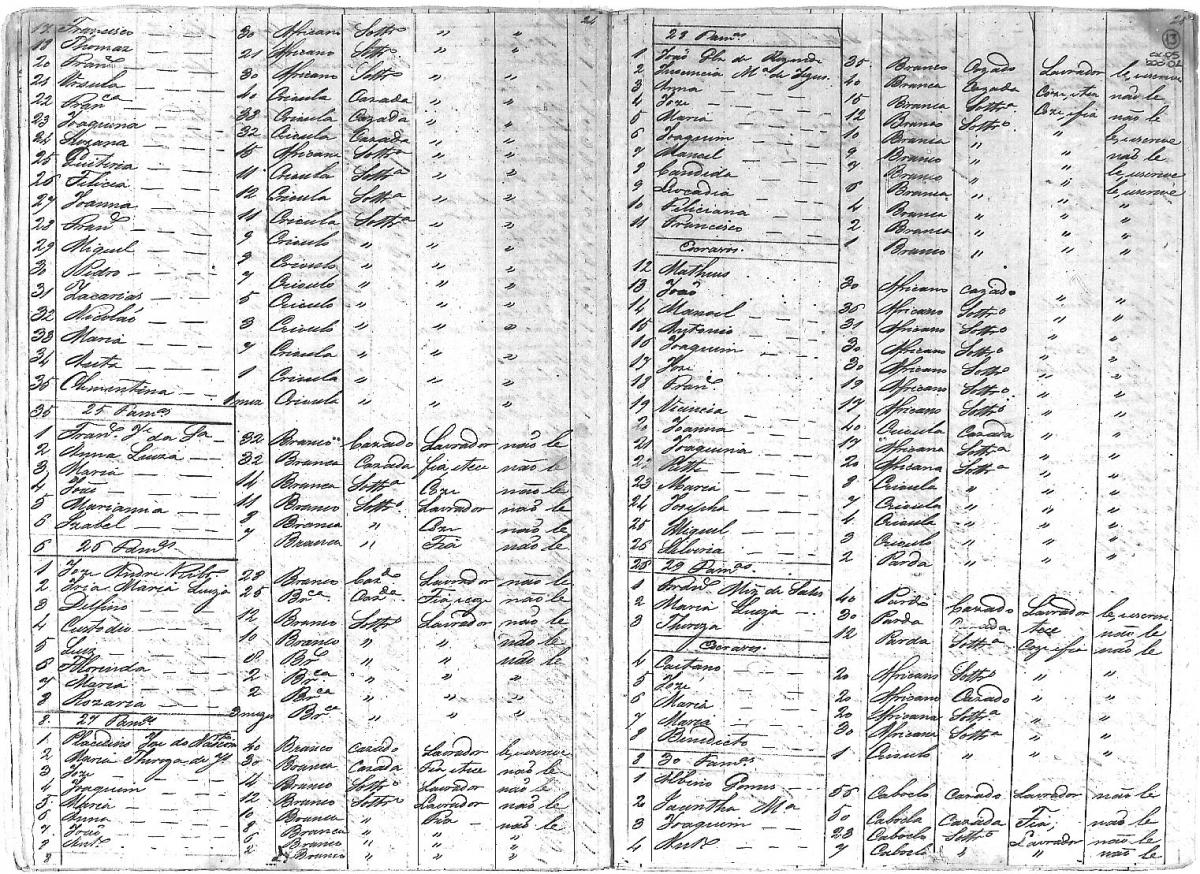 24
17 Francisco 30 Africano Soltro " "
18 Thomaz 21 Africano Soltro " "
20 Franco 30 Africano Soltro " "
21 Ursula 40 Crioula Cazada " "
22 Franca 33 Crioula Cazada " "
23 Joaquina 32 Crioula Cazada " "
24 Rozana 15 Africana Soltra " "
25 Quiteria 11 Crioula Soltra " "
26 Felicia 12 Crioula Soltra " "
27 Joanna 11 Crioula Soltra " "
28 Franco 9 Crioulo " "
29 Miguel 9 Crioulo " "
30 Pedro 7 Crioulo " "
31 Zacarias 5 Crioulo " "
32 Nicoláo 3 Crioulo " "
33 Maria 7 Crioula " "
34 Anta 1 Crioula " "
35 Clementina Crioula " "
35 25 Famas
1 Franco da 32 Branco Cazado Lavrador não le
2 Anna Luiza 32 Branca Cazada fia e tece não le
3 Maria 14 Branca Soltra Coze não le
4 João 11 Branco Soltro Lavrador não le
5 Marianna 8 Branca " Coze não le
6 Izabel 7 Branca " Fia não le
6 26 Famas
1 Joze Andre 28 Branco Cazdo Lavrador não le
2 Maria Luiza 25 Brca Cazda Fia e coze não le
3 Delfino 12 Branco Soltro Lavrador não le
4 Custodio 10 Branco " " não le
5 Luiz 8 Bro " " não le
6 Florinda 2 Brca " "
7 Maria 2 Brca " "
8 Rozaria 3 mezes Brca " "
8 27 Famas
1 Placedino Joze do 40 Branco cazado Lavrador le, escreve
2 Maria Thereza de 30 Branca Cazada Fia e tece não le
3 Joze 14 Branco Soltro Lavrador não le
4 Joaquim 12 Branco Soltro Lavrador não le
5 Maria 10 Branca " Fia não le
6 Anna 8 Branca " " "
7 João 6 Branco " " "
8 Anto 2 Branco " " "
13
28 Famas
1 João de Rezende 35 Branco Cazado Lavrador le, escreve
2 Innocencia Ma de Jezus 40 Branca Cazada Coze, e tece não le
3 Anna 15 Branca Soltra Coze e fia não le
4 Joze 12 Branco Soltro " le, escreve
5 Maria 10 Branca " " não le
6 Joaquim 9 Branco " " le, escreve
7 Manoel 7 Branco " " le, escreve
8 Candida 6 Branca " " "
9 Leocadia 4 Branca " " "
10 Feliciana 2 Branca " " "
11 Francisco 1 Branco " " "
Escravos.
12 Matheus 30 Africano cazado " "
13 João 36 Africano Soltro " "
14 Manoel 31 Africano Soltro " "
15 Antonio 30 Africano Soltro " "
16 Joaquim 30 Africano Soltro " "
17 Joze 19 Africano Soltro " "
18 Franco 17 Africano Soltro " "
19 Vicencia 40 Crioula Cazada " "
20 Joanna 17 Africana Soltra " "
21 Joaquina 20 Africana Soltra " "
22 Ritta 8 Crioula " "
23 Maria 7 Crioula " "
24 Josepha 4 Crioula " "
25 Miguel 3 Crioulo " "
26 Silveria 2 Parda " "
26 29 Famas
1 Franco Miz de Sales 40 Pardo Cazado Lavrador le, escreve
2 Maria Luiza 30 Parda Cazada tece não le
3 Thereza 12 Parda Soltra Coze e fia não le
Escravos.
4 Caetano 20 Africano Soltro " "
5 Joze 20 Africano Cazado " "
6 Maria 20 Africana Soltra " "
7 Maria 30 Africana Soltra " "
8 Benedicto 1 Crioulo " "
8 30 Famas
1 Albino Gomes 56 Caboclo Cazado Lavrador não le
2 Jacintha Ma 50 Cabocla Cazada Fia, não le
3 Joaquim 23 Caboclo Soltro Lavrador não le
4 Anto 7 Caboclo " " não le